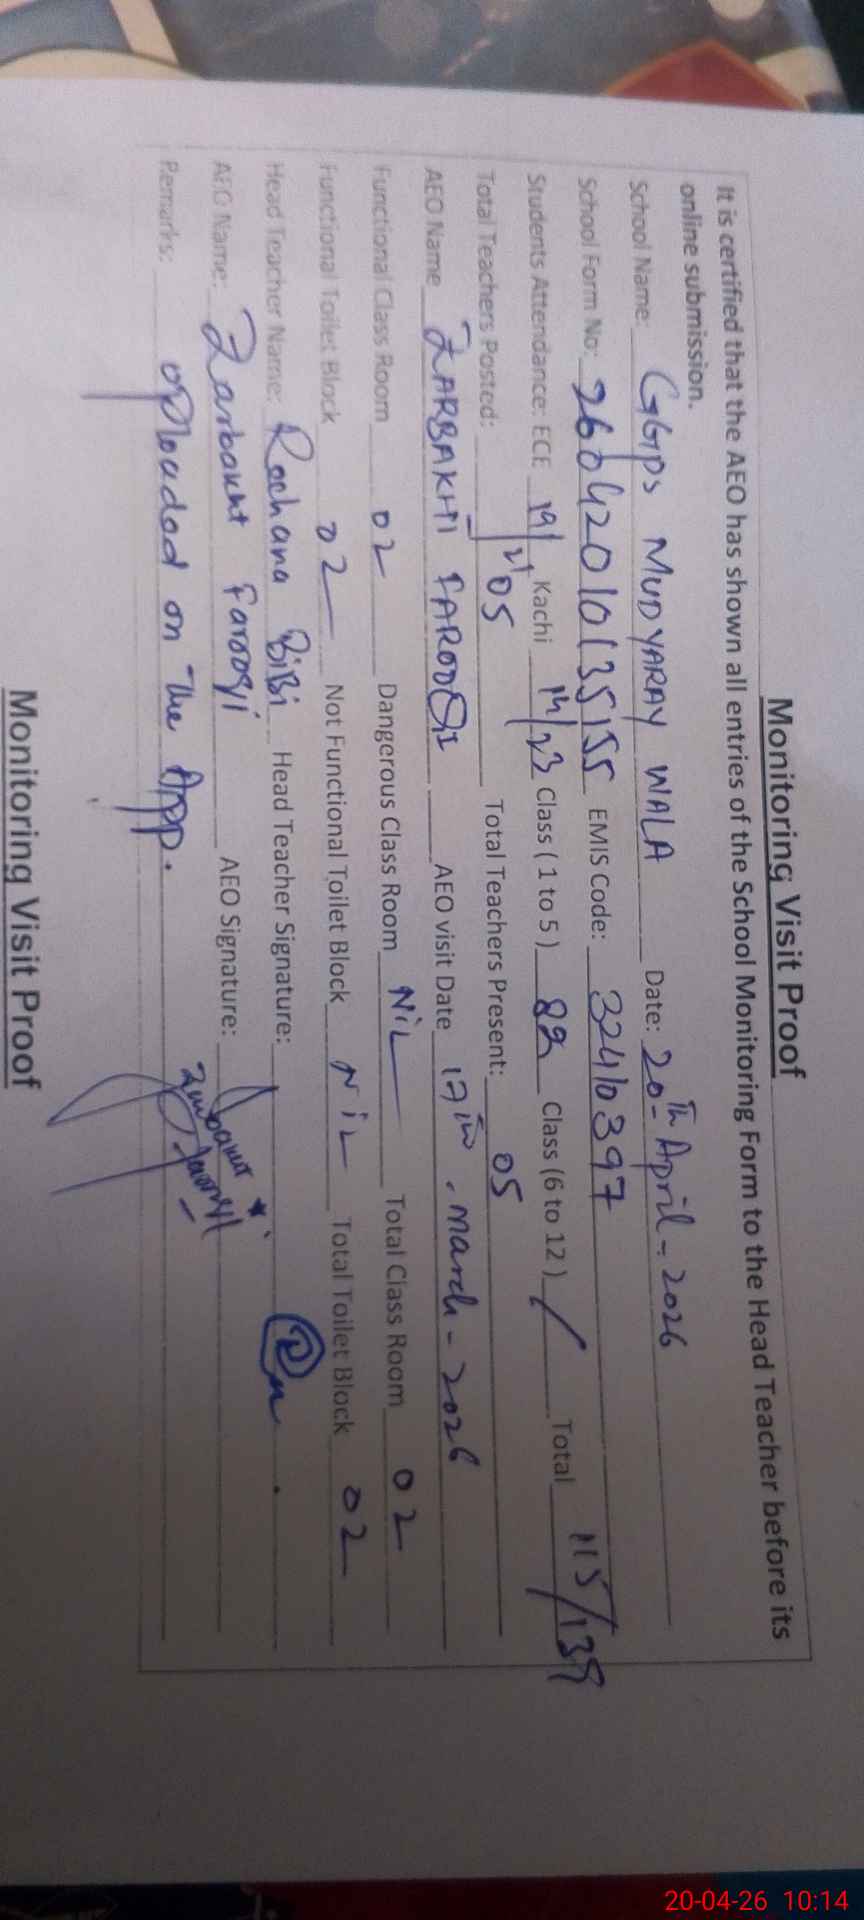 Monitoring Visit Proof
It is certified that the AEO has shown all entries of the School Monitoring Form to the Head Teacher before its
online submission.
School Name: GGPS MUDYARAY WALA Date: 20Th April-2026
School Form No: 26042010135155 EMIS Code: 32410397
Students Attendance: ECE 19/21 Kachi 14/23 Class (1 to 5) 82 Class (6 to 12) / Total 115/139
Total Teachers Posted: 05 Total Teachers Present: 05
AEO Name ZARBAKHT FAROOQI AEO visit Date 17th, March-2026
Functional Class Room 02 Dangerous Class Room NiL Total Class Room 02
Functional Toilet Block 02 Not Functional Toilet Block NiL Total Toilet Block 02
Head Teacher Name: Rochana BiBi Head Teacher Signature:
AEO Name: Zarbakht Farooqi AEO Signature: Zarbakht Farooqi
Remarks: Uploaded on The App.
Monitoring Visit Proof
20-04-26 10:14